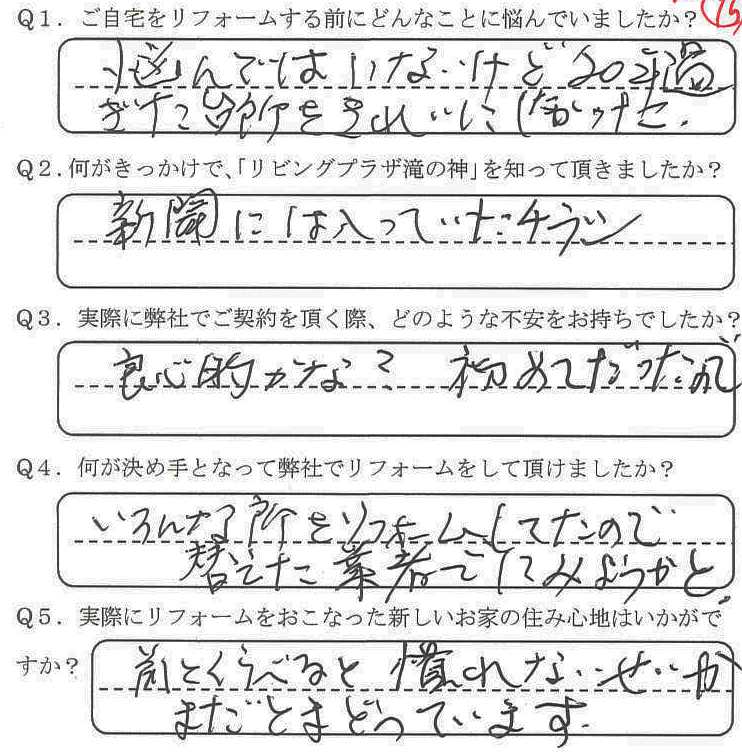 Q1. ご自宅をリフォームする前にどんなことに悩んでいましたか?
悩んではいないけど20年過
ぎた台所をきれいにしたかった.
Q2.何がきっかけで、「リビングプラザ滝の神」を知って頂きましたか?
新聞には入っていたチラシ
Q3. 実際に弊社でご契約を頂く際、どのような不安をお持ちでしたか?
良心的かな? 初めてだったので
Q4. 何が決め手となって弊社でリフォームをして頂けましたか?
いろんな所をリフォームしてたので
替えた業者でしてみようかと。
Q5. 実際にリフォームをおこなった新しいお家の住み心地はいかがで
すか?
前とくらべると慣れないせいか
まだとまどっています.